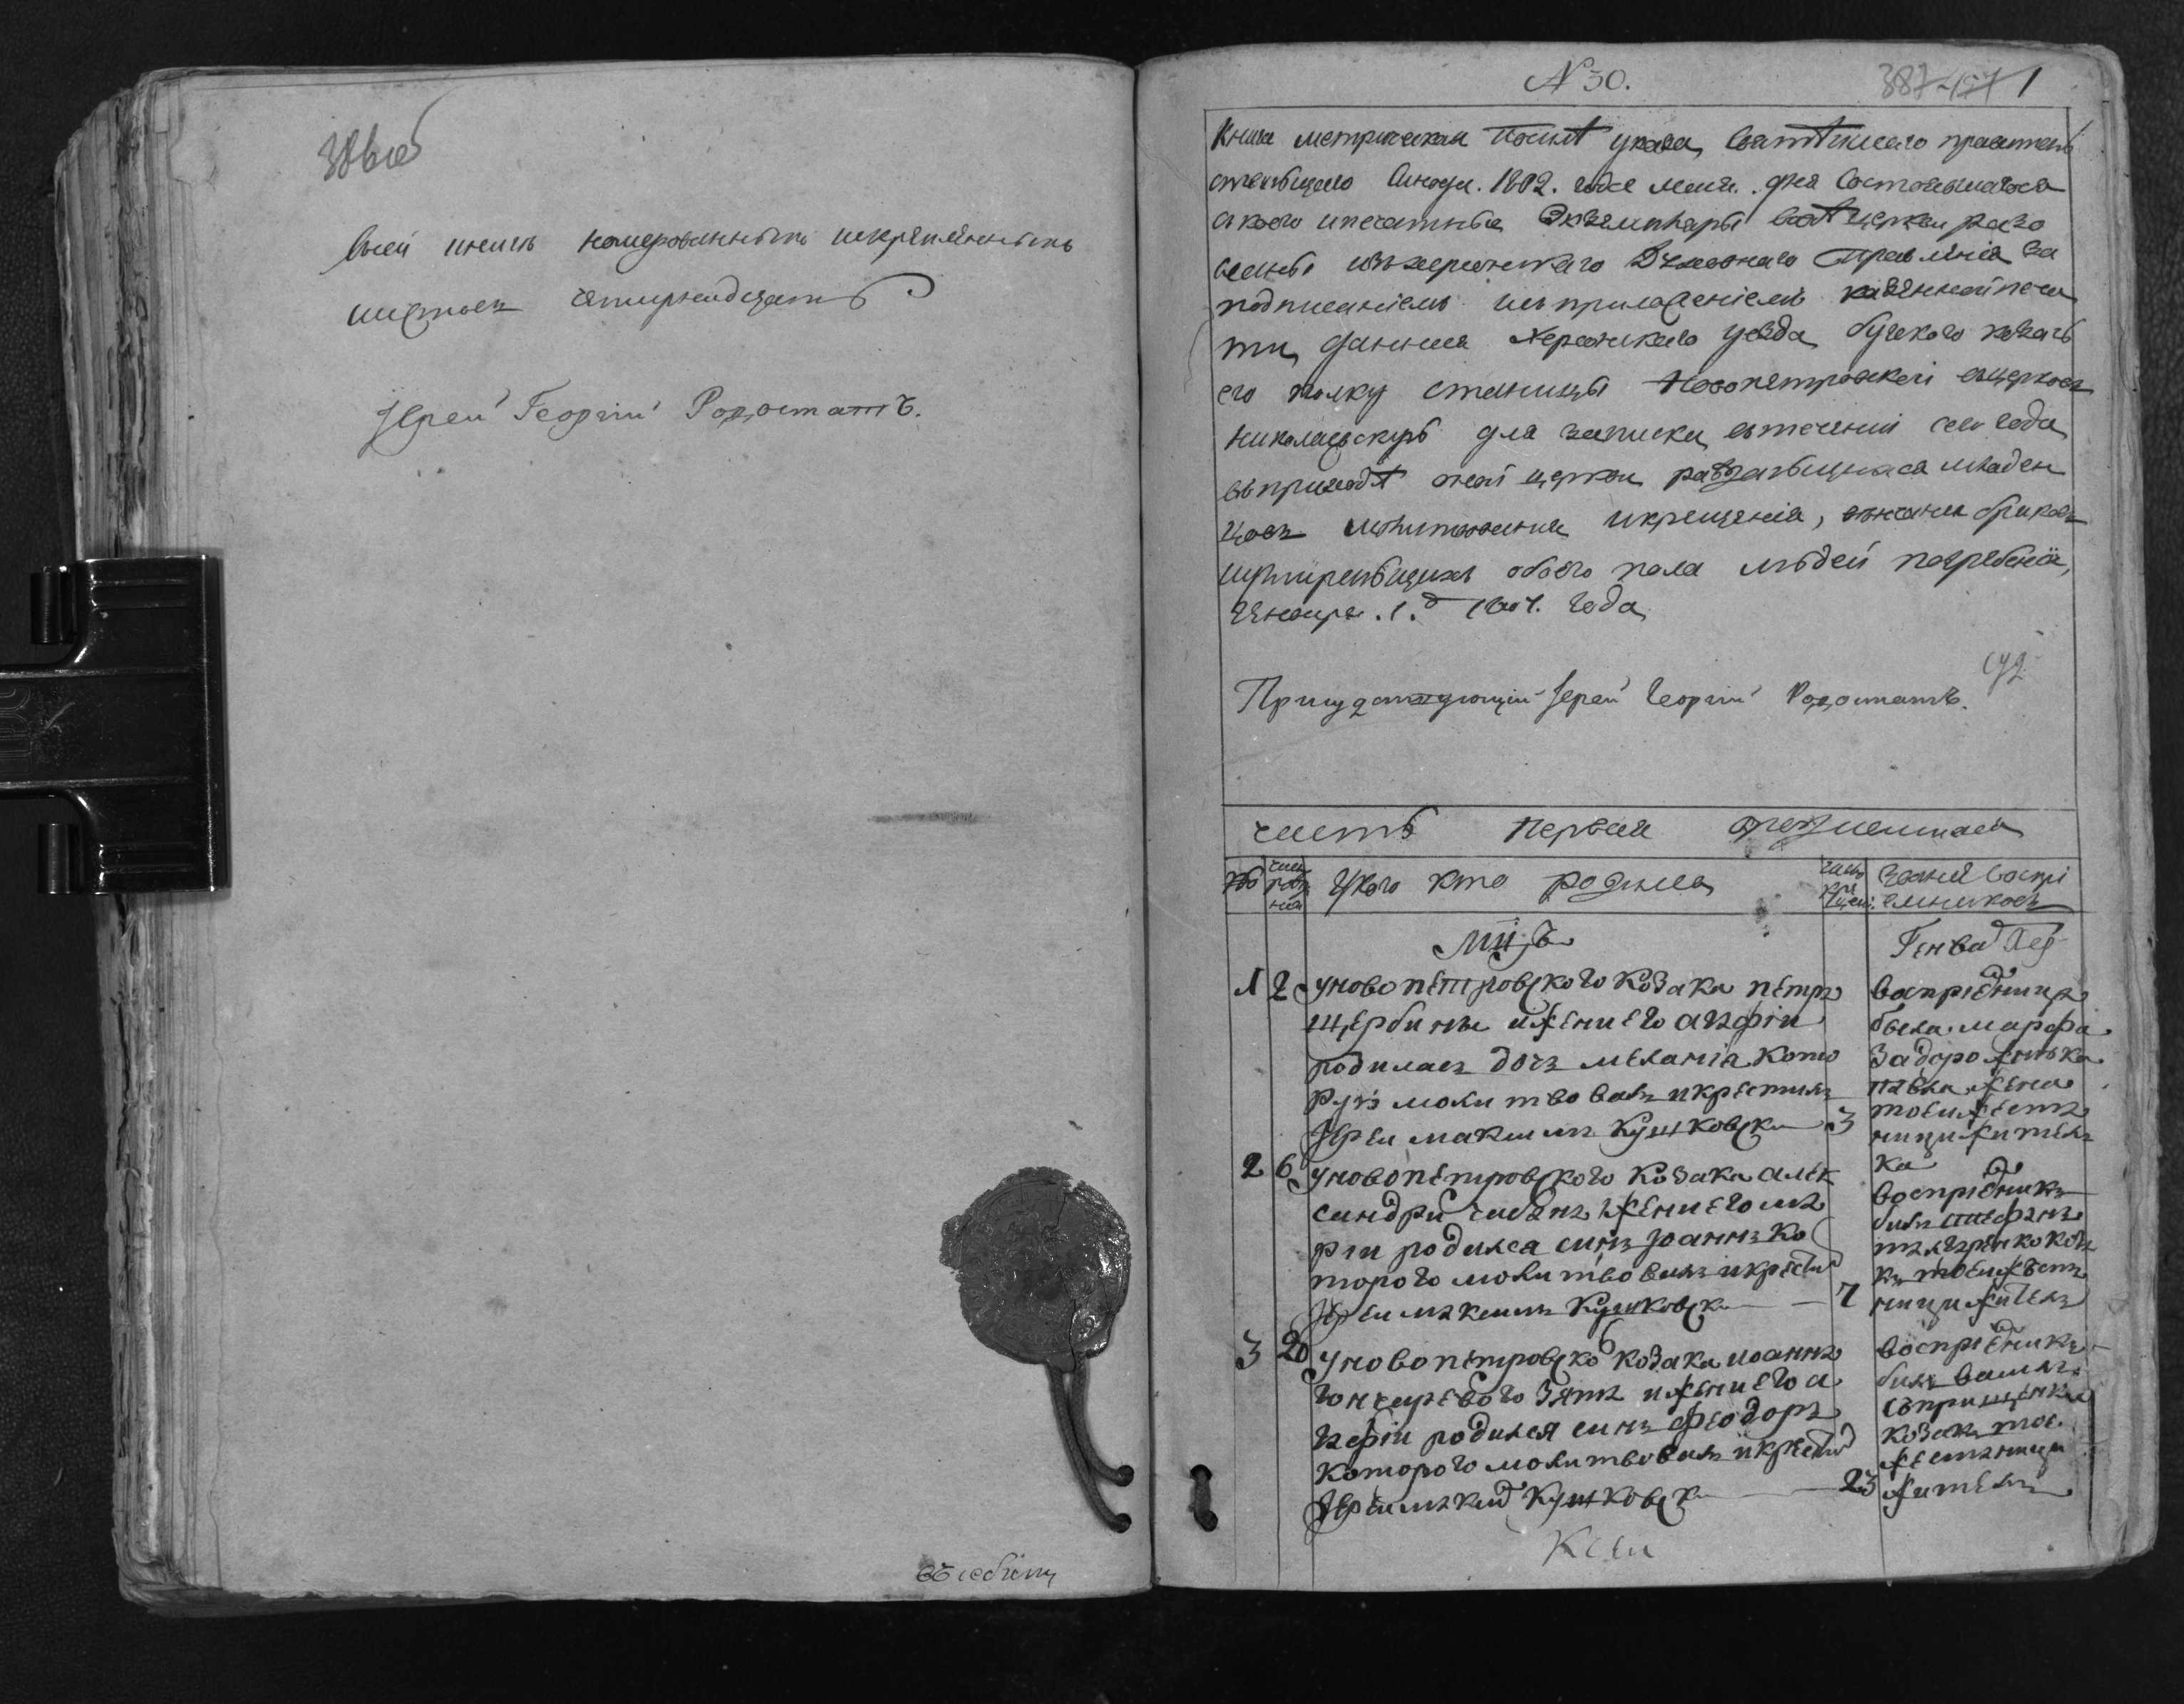 386об
Всей книги номерованныхъ искрепленныхъ
листовъ четырнадцать
Іерей Георгій Родостатъ.
№ 30.
387 1
Книга метрическая посилѣ указа, Святѣйшаго правитель
ствующаго Синода. 1802. года маія. дня Состоявшагося
скоего ипечатные Экземпляры всѣ церкви разо
сланы изъ херсонскаго Духовнаго Правленія За
подписаніемъ исприложеніемъ казенной печа
ти, данная Херсонскаго уезда, бугского козачь
его полку станицы Новопетровской вцерковь
николаевскую для записки, втеченіи сего года
вприходѣ оной церкви раждающихся младен
цовъ молитвованія икрещенія, венчанія браковъ
иумирающихъ обоего пола людей погребенія,
Генваря .1.д 1804. года
Присудствующій Іерей Георгій Родостатъ.
часть первая ораждающихся
число рожде нія
Укого кто родился
число кре щені:
Званія Воспрі емниковъ
Мцъ
Генварь
1 2 уновопетровского козака петра
щербины ижени его агафіи
родилась дочъ меланія кото
рую молитвовалъ икрестилъ
Іереи максимъ Кушковски 3
воспріемница
была марфа
Задорожнька
павла жена
тоеижеста
ници жителъ
ка
2 6 уновопетровского козака алек
сандра чабана ижени его ма
ріи родился синъ Іоаннъ ко
торого молитвовалъ икрести
Іереи максимъ Кушковски 7
воспріемникъ
билъ стефанъ
коза
къ тоеижъста
ници жителъ
3 20 уновопетровско козака иоанна
гончаревого Зятя ижени его а
гафіи родился синъ Феодоръ
которого молитвовалъ икрести
Іереи максим Кушковски 23
воспріемникъ
билъ василъ
козакъ тое
жестаници
жителъ
Ксеи